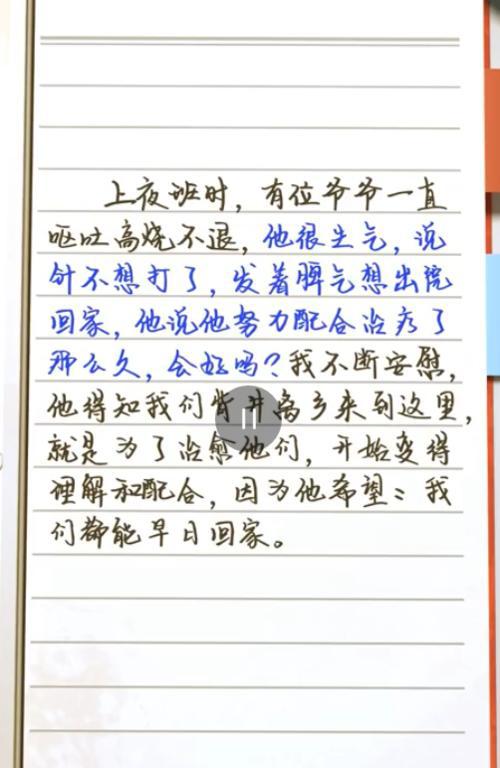 上夜班时，有位爷爷一直
呕吐高烧不退，他很生气，说
针不想打了，发着脾气想出院
回家，他说他努力配合治疗了
那么久，会好吗？我不断安慰，
他得知我们背井离乡来到这里，
就是为了治愈他们，开始变得
理解和配合，因为他希望：我
们都能早日回家。